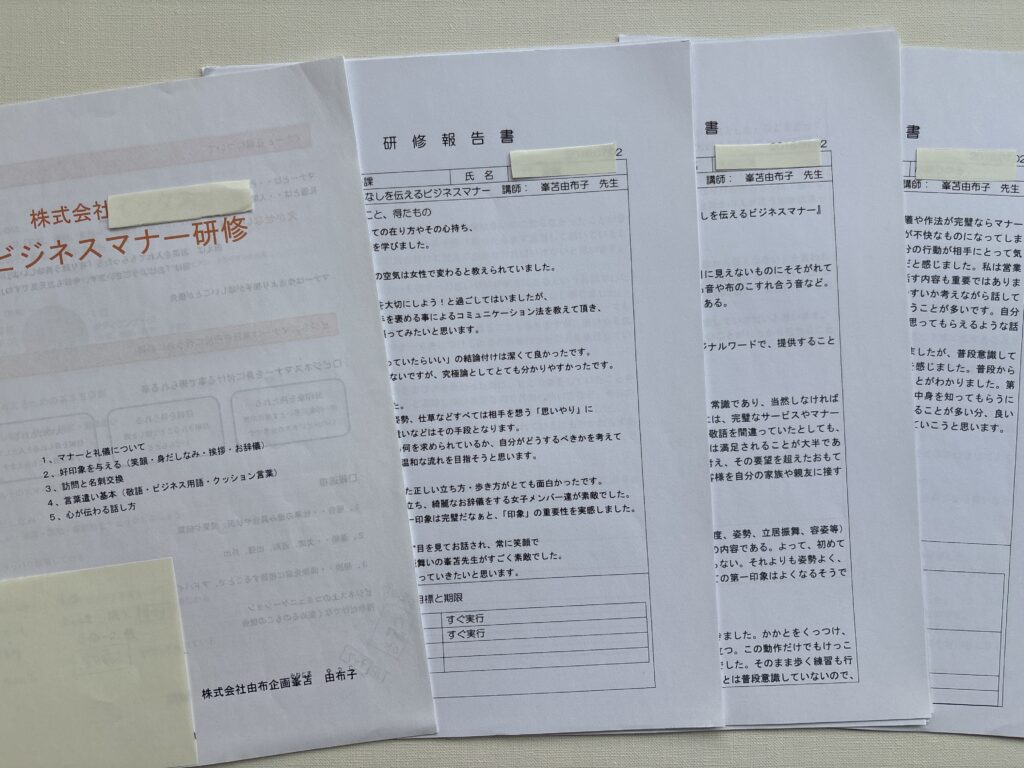 株式会社
ビジネスマナー研修
1、マナーと礼儀について
2、好印象を与える（笑顔・身だしなみ・挨拶・お辞儀）
3、訪問と名刺交換
4、言葉遣い基本（敬語・ビジネス用語・クッション言葉）
5、心が伝わる話し方
株式会社由布企画峯苫　由布子
研修報告書
2
課
氏名
なしを伝えるビジネスマナー　講師：　峯苫由布子　先生
こと、得たもの
ての在り方やその心持ち、
を学びました。
の空気は女性で変わると教えられていました。
を大切にしよう！と過ごしてはいましたが、
手を褒める事によるコミュニケーション法を教えて頂き、
ってみたいと思います。
っていたらいい」の結論付けは潔くて良かったです。
ないですが、究極論としてとても分かりやすかったです。
た。
姿勢、仕草などすべては相手を想う「思いやり」に
遣いなどはその手段となります。
ら何を求められているか、自分がどうするべきかを考えて
温和な流れを目指そうと思います。
た正しい立ち方・歩き方がとても面白かったです。
立ち、綺麗なお辞儀をする女子メンバー達が素敵でした。
一印象は完璧だなぁと、「印象」の重要性を実感しました。
目を見てお話され、常に笑顔で
舞いの峯苫先生がすごく素敵でした。
っていきたいと思います。
目標と期限
すぐ実行
すぐ実行
書
2
講師：　峯苫由布子　先生
しを伝えるビジネスマナー』
目に見えないものにそそがれて
る音や布のこすれ合う音など。
ある。
ジナルワードで、提供すること
常識であり、当然しなければ
には、完璧なサービスやマナー
敬語を間違っていたとしても、
は満足されることが大半であ
言え、その要望を超えたおもて
客様を自分の家族や親友に接す
度、姿勢、立居振舞、容姿等）
の内容である。よって、初めて
らない。それよりも姿勢よく、
ての第一印象はよくなるそうで
きました。かかとをくっつけ、
立つ。この動作だけでもけっこ
でした。そのまま歩く練習も行
とは普段意識していないので、
書
儀や作法が完璧ならマナー
が不快なものになってしま
分の行動が相手にとって気
だと感じました。私は営業
話す内容も重要ではありま
すいか考えながら話して
うことが多いです。自分
思ってもらえるような話
ましたが、普段意識して
を感じました。普段から
とがわかりました。第
中身を知ってもらうに
ることが多い分、良い
ていこうと思います。